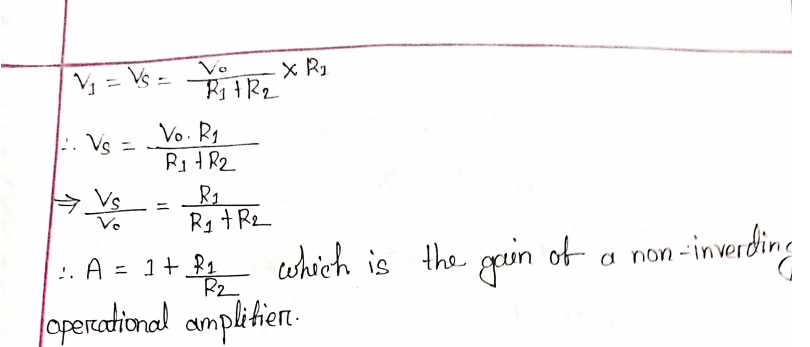 V1 = Vs = Vo / (R1 + R2) × R1
∴ Vs = Vo. R1 / (R1 + R2)
⇒ Vs / Vo = R1 / (R1 + R2)
∴ A = 1 + R1 / R2 which is the gain of a non-inverding
operational amplifier.